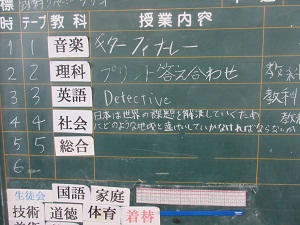 時 テープ 教科 授業内容
1 1 音楽 ギターフィナーレ
2 2 理科 プリント答え合わせ 教科
3 3 英語 Detective 教科
4 4 社会 日本は世界の課題を解決していくため
にどのような地域と連けいしていかなければならないか
5 5 総合
6
生徒会 国語 家庭
技術 道徳 体育 着替